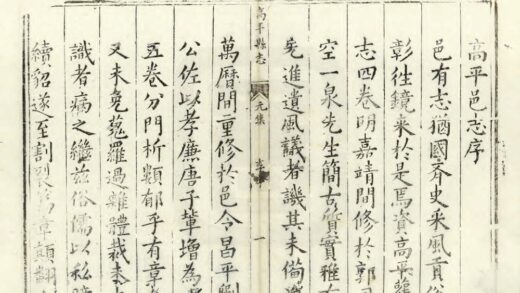 高平邑志序
邑有志猶國史采風貢俗
彰往鏡来於是焉資高平舊
志四卷明嘉靖間修於郭司
空一泉先生簡古質實雅有
先進遺風議者譏其未備
高平縣志
元集
一
萬曆間重修於邑令昌平劉
公佐以孝廉唐子輩增為
五卷分門析類郁乎有章
又未免蒐羅過雜體裁未
識者病之繼茲俗儒以私
續貂遂至割裂章顛